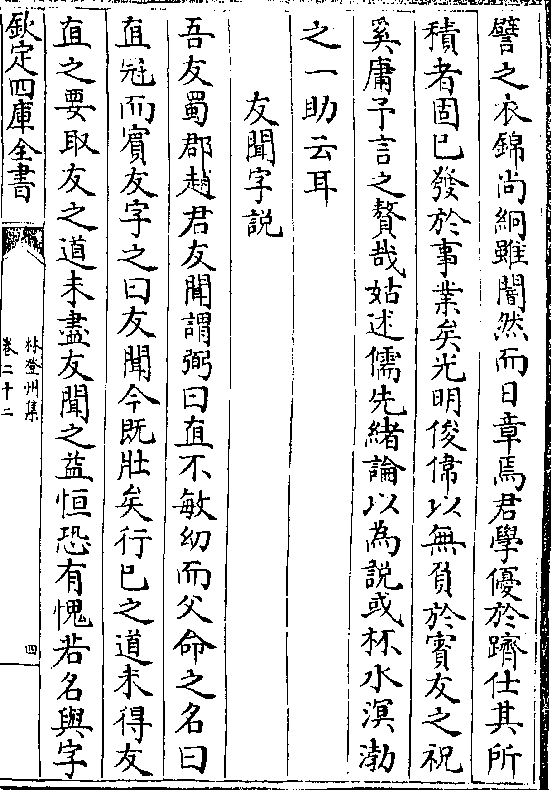 譬之衣錦尚絅雖闇然而日章焉君學優於躋仕其所
積者固已發於事業矣光明俊偉以無負於賓友之祝
奚庸予言之贅哉姑述儒先緒論以為説或杯水溟渤
之一助云耳
友聞字説
吾友蜀郡趙君友聞謂弼曰直不敏幼而父命之名曰
直冠而賓友字之曰友聞今既壯矣行已之道未得友
直之要取友之道未盡友聞之益恒恐有愧若名與字
欽定四庫全書
林登州集
卷二十二
四